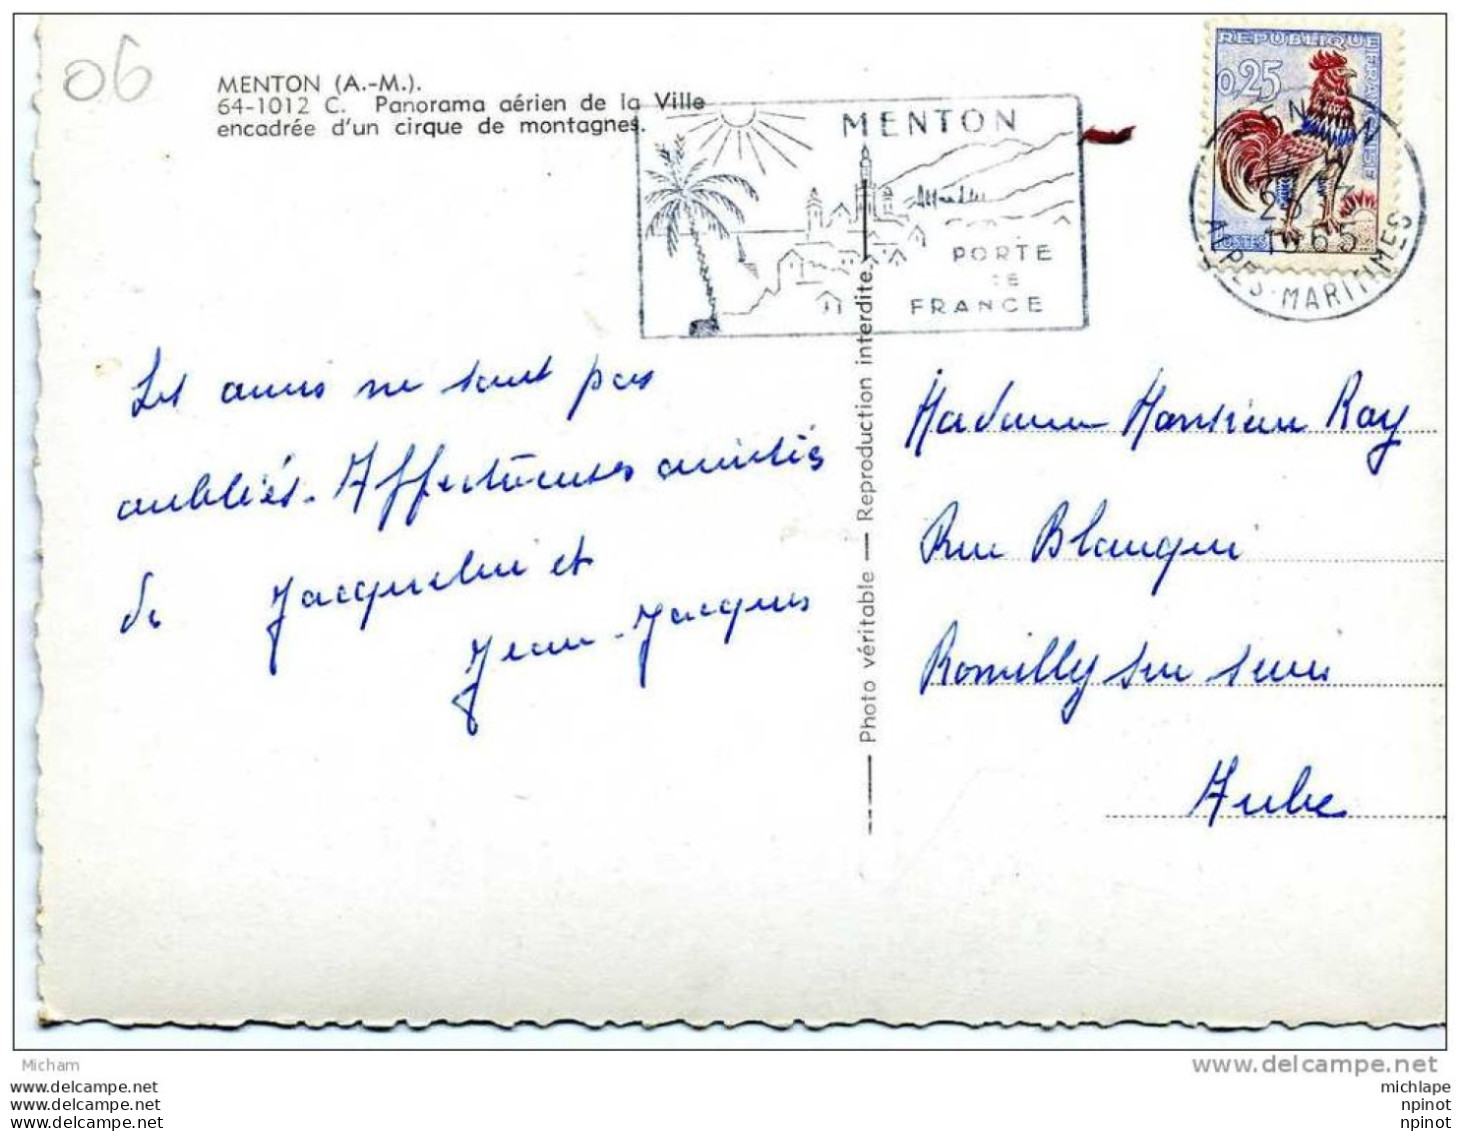 06
MENTON (A.-M.).
64-1012 C. Panorama aérien de la Ville
encadrée d'un cirque de montagnes.
MENTON
PORTE
DE
FRANCE
REPUBLIQUE FRANCAISE
0,25
POSTES
MENTON
1965
ALPES-MARITIMES
Les amis ne sont pas
oubliés. Affectueuses amitiés
de Jacqueline et
Jean-Jacques
Photo véritable — Reproduction interdite.
Madame Monsieur Ray
Rue Blanqui
Romilly sur Seine
Aube
Micham
www.delcampe.net
www.delcampe.net
www.delcampe.net
www.delcampe.net
michlape
npinot
npinot